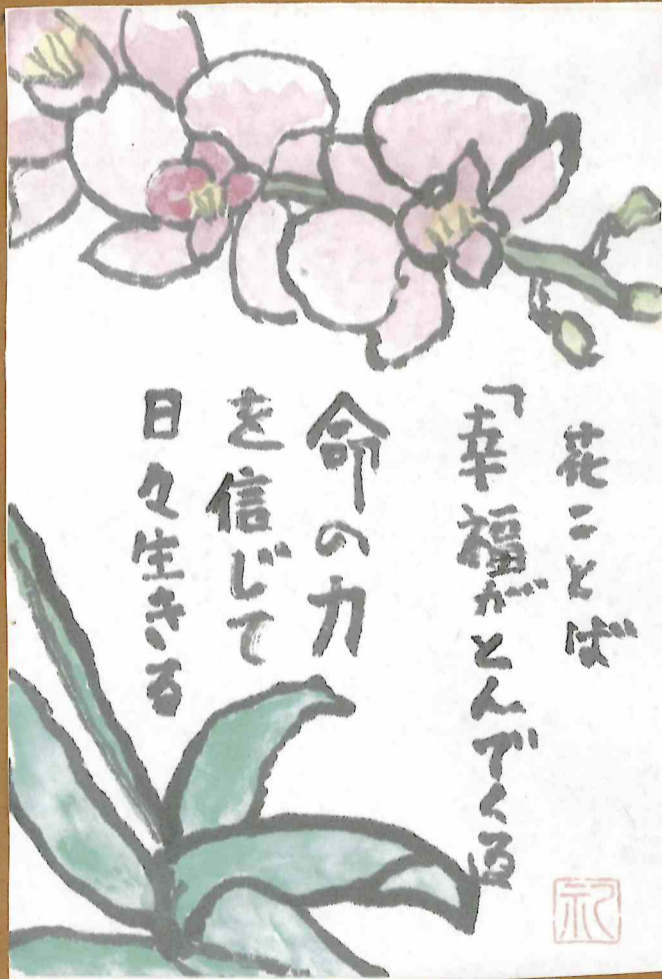 花ことば
「幸福がとんでくる」
命の力
を信じて
日々生きる